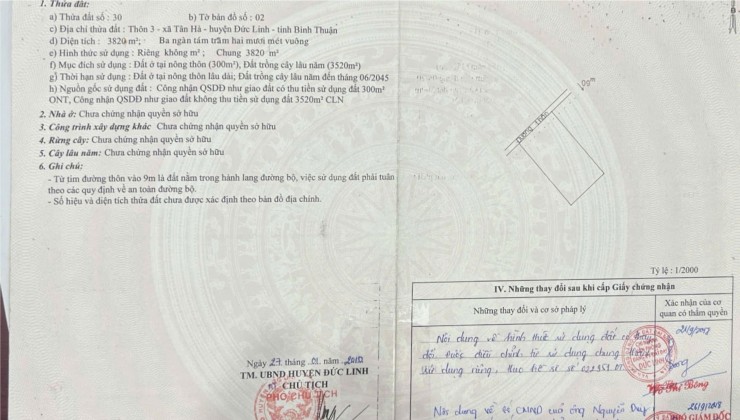 1. Thửa đất:
a) Thửa đất số : 30 b) Tờ bản đồ số : 02
c) Địa chỉ thửa đất : Thôn 3 - xã Tân Hà - huyện Đức Linh - tỉnh Bình Thuận
d) Diện tích : 3820 m²; Ba ngàn tám trăm hai mươi mét vuông
e) Hình thức sử dụng : Riêng không m² ; Chung 3820 m²
f) Mục đích sử dụng : Đất ở tại nông thôn (300m²), Đất trồng cây lâu năm (3520m²)
g) Thời hạn sử dụng : Đất ở tại nông thôn lâu dài; Đất trồng cây lâu năm đến tháng 06/2045
h) Nguồn gốc sử dụng đất : Công nhận QSDĐ như giao đất có thu tiền sử dụng đất 300m²
ONT, Công nhận QSDĐ như giao đất không thu tiền sử dụng đất 3520m² CLN
2. Nhà ở: Chưa chứng nhận quyền sở hữu
3. Công trình xây dựng khác Chưa chứng nhận quyền sở hữu
4. Rừng cây: Chưa chứng nhận quyền sở hữu
5. Cây lâu năm: Chưa chứng nhận quyền sở hữu
6. Ghi chú:
- Từ tim đường thôn vào 9m là đất nằm trong hành lang đường bộ, việc sử dụng đất phải tuân
theo các quy định về an toàn đường bộ.
- Số hiệu và diện tích thửa đất chưa được xác định theo bản đồ địa chính.
Ngày 27 tháng 01 năm
TM. UBND HUYỆN ĐỨC LINH
CHỦ TỊCH
PHÓ CHỦ TỊCH
Đường Thôn
Tỷ lệ : 1/2000
IV. Những thay đổi sau khi cấp Giấy chứng nhận
Những thay đổi và cơ sở pháp lý
Xác nhận của cơ
quan có thẩm quyền
Nội dung về hình thức sử dụng đất có thay
đổi, được điều chỉnh từ sử dụng chung
sử dụng riêng, theo hồ sơ số
Nội dung về số CMND của ông Nguyễn Duy
GIÁM ĐỐC